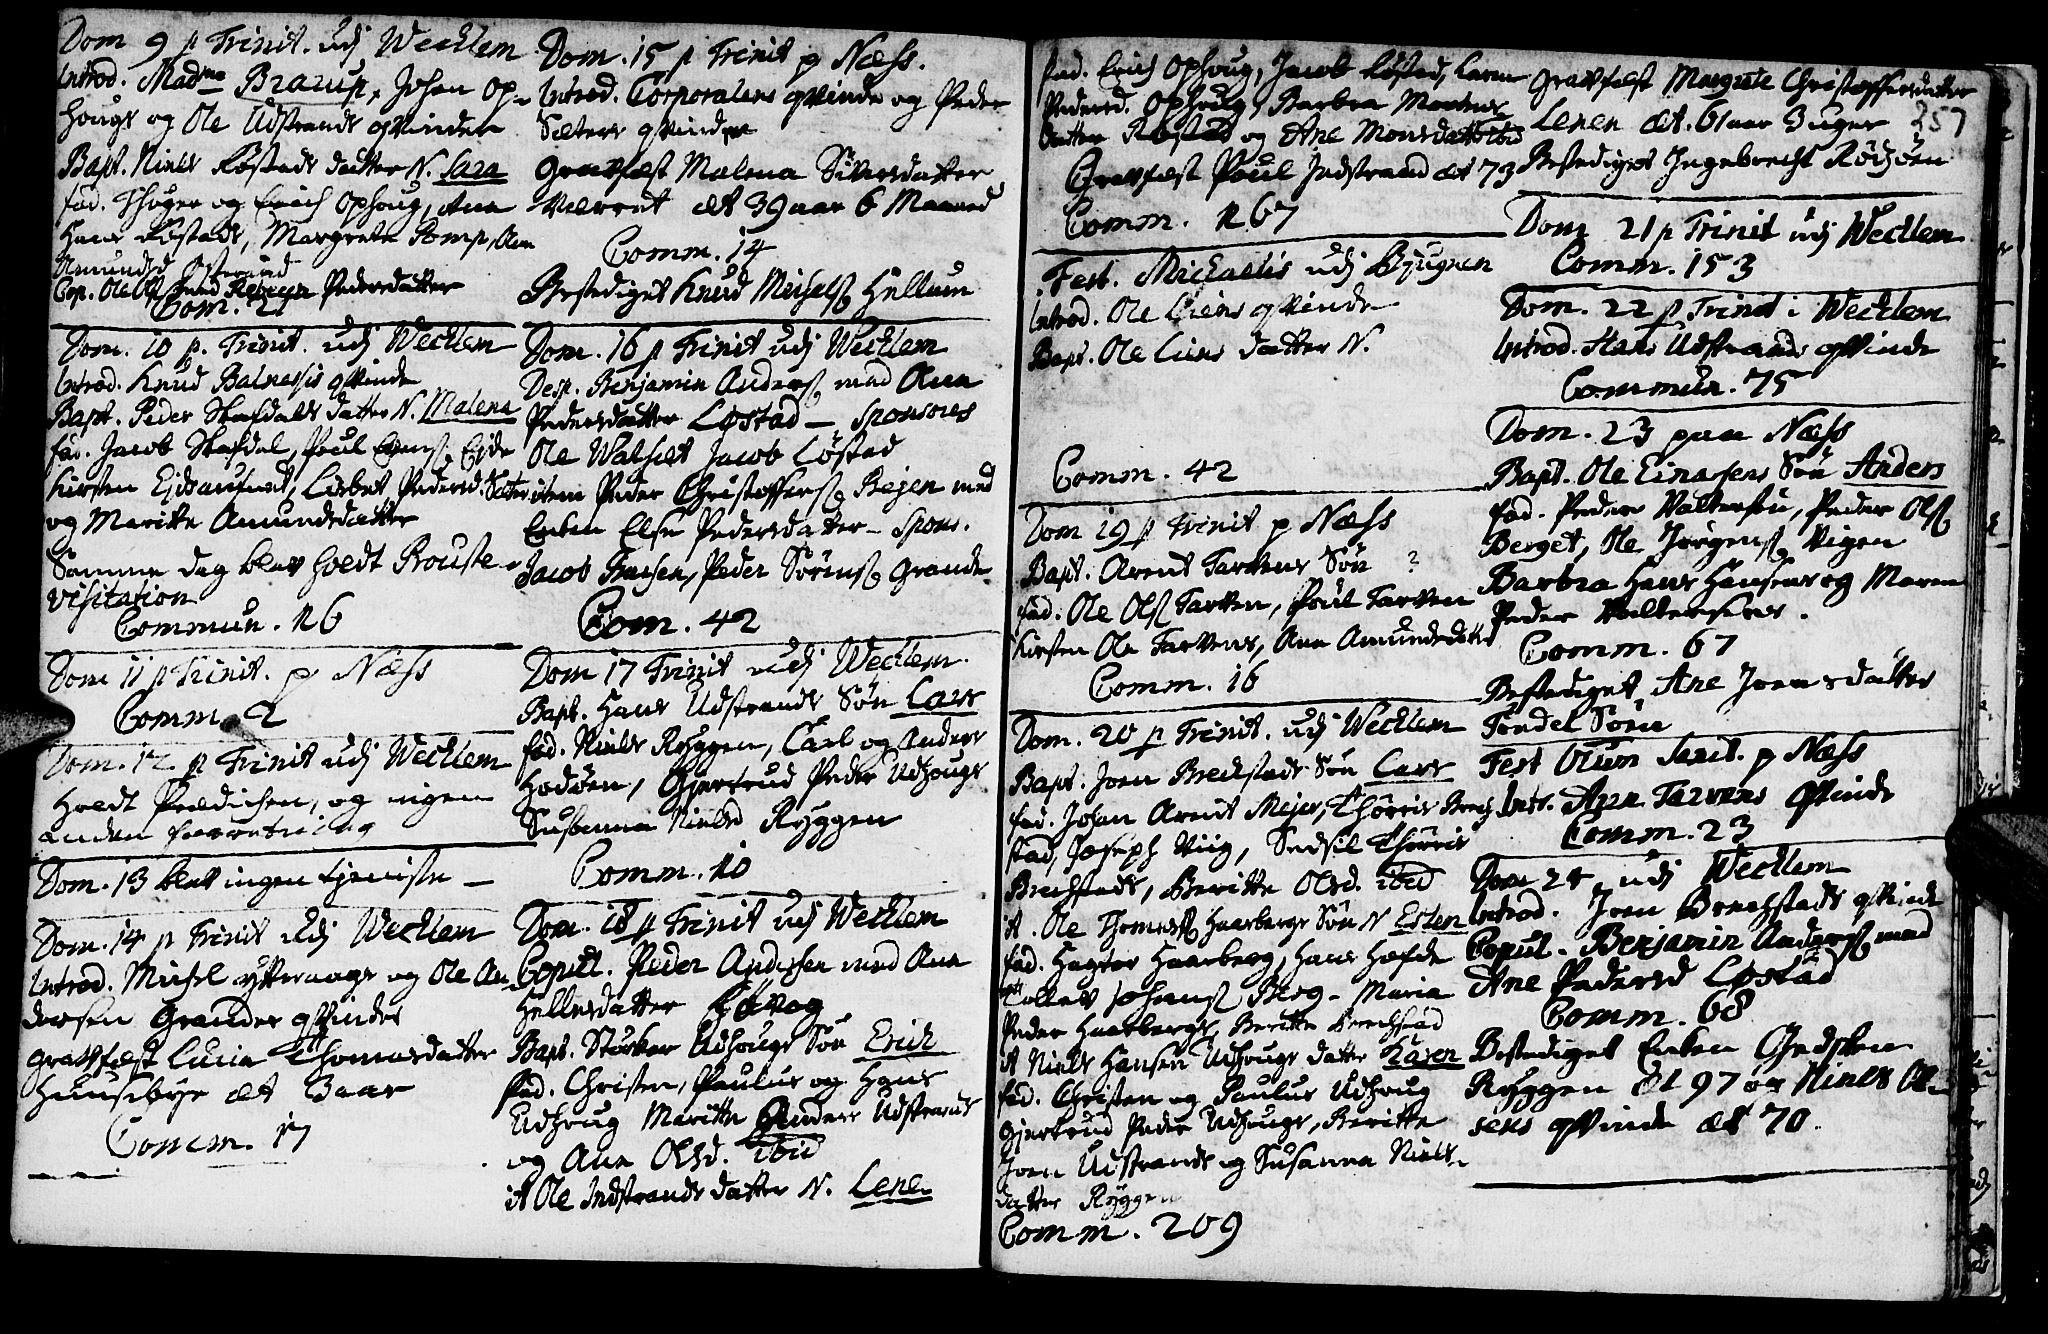 Dom 9 p Trinit. udj Wecklem
Introd. Madme Brarup, Johan Op-
hougs og Ole Udstrands qvinder
Bapt. Niels Røstads datter N. Sara
fad. Thoger og Erich Ophoug, Ane
Hans Røstads, Margrete Romp, Ane
Amundsd
Cop. Ole Pedersdatter
Com. 21
Dom. 10 p. Trinit. udj Wecklem
Introd. Knud Balnessis qvinde
Bapt. Peder Skafdals datter N. Malena
fad. Jacob Skafdel, Poul Eide
Kirsten Eidsaunet, Lisbet Pedersd. Sæter
og Maritte Amundsdatter
Samme dag blev holdt Prouste-
visitation
Commun. 26
Dom 11 p Trinit. p Næss
Comm. 2
Dom. 12 p Trinit udj Wecklem
Holdt Prædichen, og ingen
anden forretning
Dom. 13 blev ingen tjeniste
Dom. 14 p Trinit udj Wecklem
Introd. Michel ytteraags og Ole An-
dersen Grandes qvinder
Gravfæst Lucia Thomasdatter
Huusebye æt 3 aar
Comm. 17
Dom. 15 p Trinit p Næss.
Introd. Corporalens qvinde og Peder
Sæters qvinder
Gravfæst Malena Siversdatter
æt 39 aar 6 Maaned
Comm. 14
Bestediget Knud Michels Hellum
Dom. 16 p Trinit udj Wecklem
Desp. Benjamin Anders med Ane
Pedersdatter Løstad — Sponsores
Ole Walset Jacob Løstad
item Peder Christoffers Bejen med
Enken Else Pedersdatter — Spons.
Jacob Peder Sørens Grande
Com. 42
Dom 17 Trinit udj Wecklem.
Bapt. Hans Udstrands Søn Lars
fad. Niels Ryggen, Carl og Anders
Hodøen, Gjertrud Peder Udhougs
Susanna Nielsd Ryggen
Comm. 10
Dom. 18 p Trinit udj Wecklem
Copul. Peder Andersen med Ane
Hellesdatter
Bapt. Størker Udhougs Søn Erich
fad. Christen, Paulus og Hans
Udhoug Maritte Anders Udstrands
og Ane Olsd. ibid
it Ole Indstrands datter N. Lene
fad. Erich Ophoug, Jacob Røstad, Karen
Pedersd. Ophoug, Barbra Mortens
datter Røstad og Ane Monsdatter ibid
Gravfæst Poul Indstrand æt 73
Comm. 167
Fest. Michaelis udj Bjugnen
Introd. Ole Liens qvinde
Bapt. Ole Liens datter N.
Comm. 42
Dom 19 p Trinit p Næss
Bapt. Arent Tarvens Søn ?
fad. Ole Ols Tarven, Poul Tarven
Kirsten Ole Tarvens, Ane Amundsdatter
Comm. 16
Dom. 20 p Trinit. udj Wecklem
Bapt. Joen Brechstads Søn Lars
fad. Johan Arent Mejer, Thorris Brech-
stad, Joseph Viig, Sedsil Thorris
Brechstads, Beritte Olsd. ibid
it. Ole Thomes Haarbergs Søn N Esten
fad. Hagtor Haarberg, Hans Hofde
Tollev Johans Berg - Maria
Peder Haarbergs, Beritte Brechstad
it Niels Hansen Udhougs datter Karen
fad. Christen og Paulus Udhoug
Gjertrud Peder Udhougs, Beritte
Joen Udstrands og Susanna Niels-
datter Ryggen
Comm. 209
357
Gravfæst Margrete Christoffersdatter
Lenen æt. 61 aar 3 uger
Bestediges Ingebrecht Rødsøen
Dom 21 p Trinit udj Wecklem
Comm. 153
Dom. 22 p Trinit i Wecklem
Introd. Hans Udstrands qvinde
Commun. 75
Dom. 23 paa Næss
Bapt. Ole Einersens Søn Anders
fad. Peder Valtersen, Peder Ols
Berget, Ole Jørgens Vigen
Barbra Hans Hansens og Maren
Peder Valtersens.
Comm. 67
Bestediget Ane Joensdatter
Tondel Søn
Fest Omn Sanct. p Næss
Intr. Aren Tarvens qvinde
Comm. 23
Dom 24 udj Wecklem
Introd. Joen Brechstads qvinde
Copul. Benjamin Anders med
Ane Pedersd Løstad
Comm. 68
Bestediget Enken Gjedsken
Ryggen æt 97 og Niels Ol-
sens qvinde æt 70.